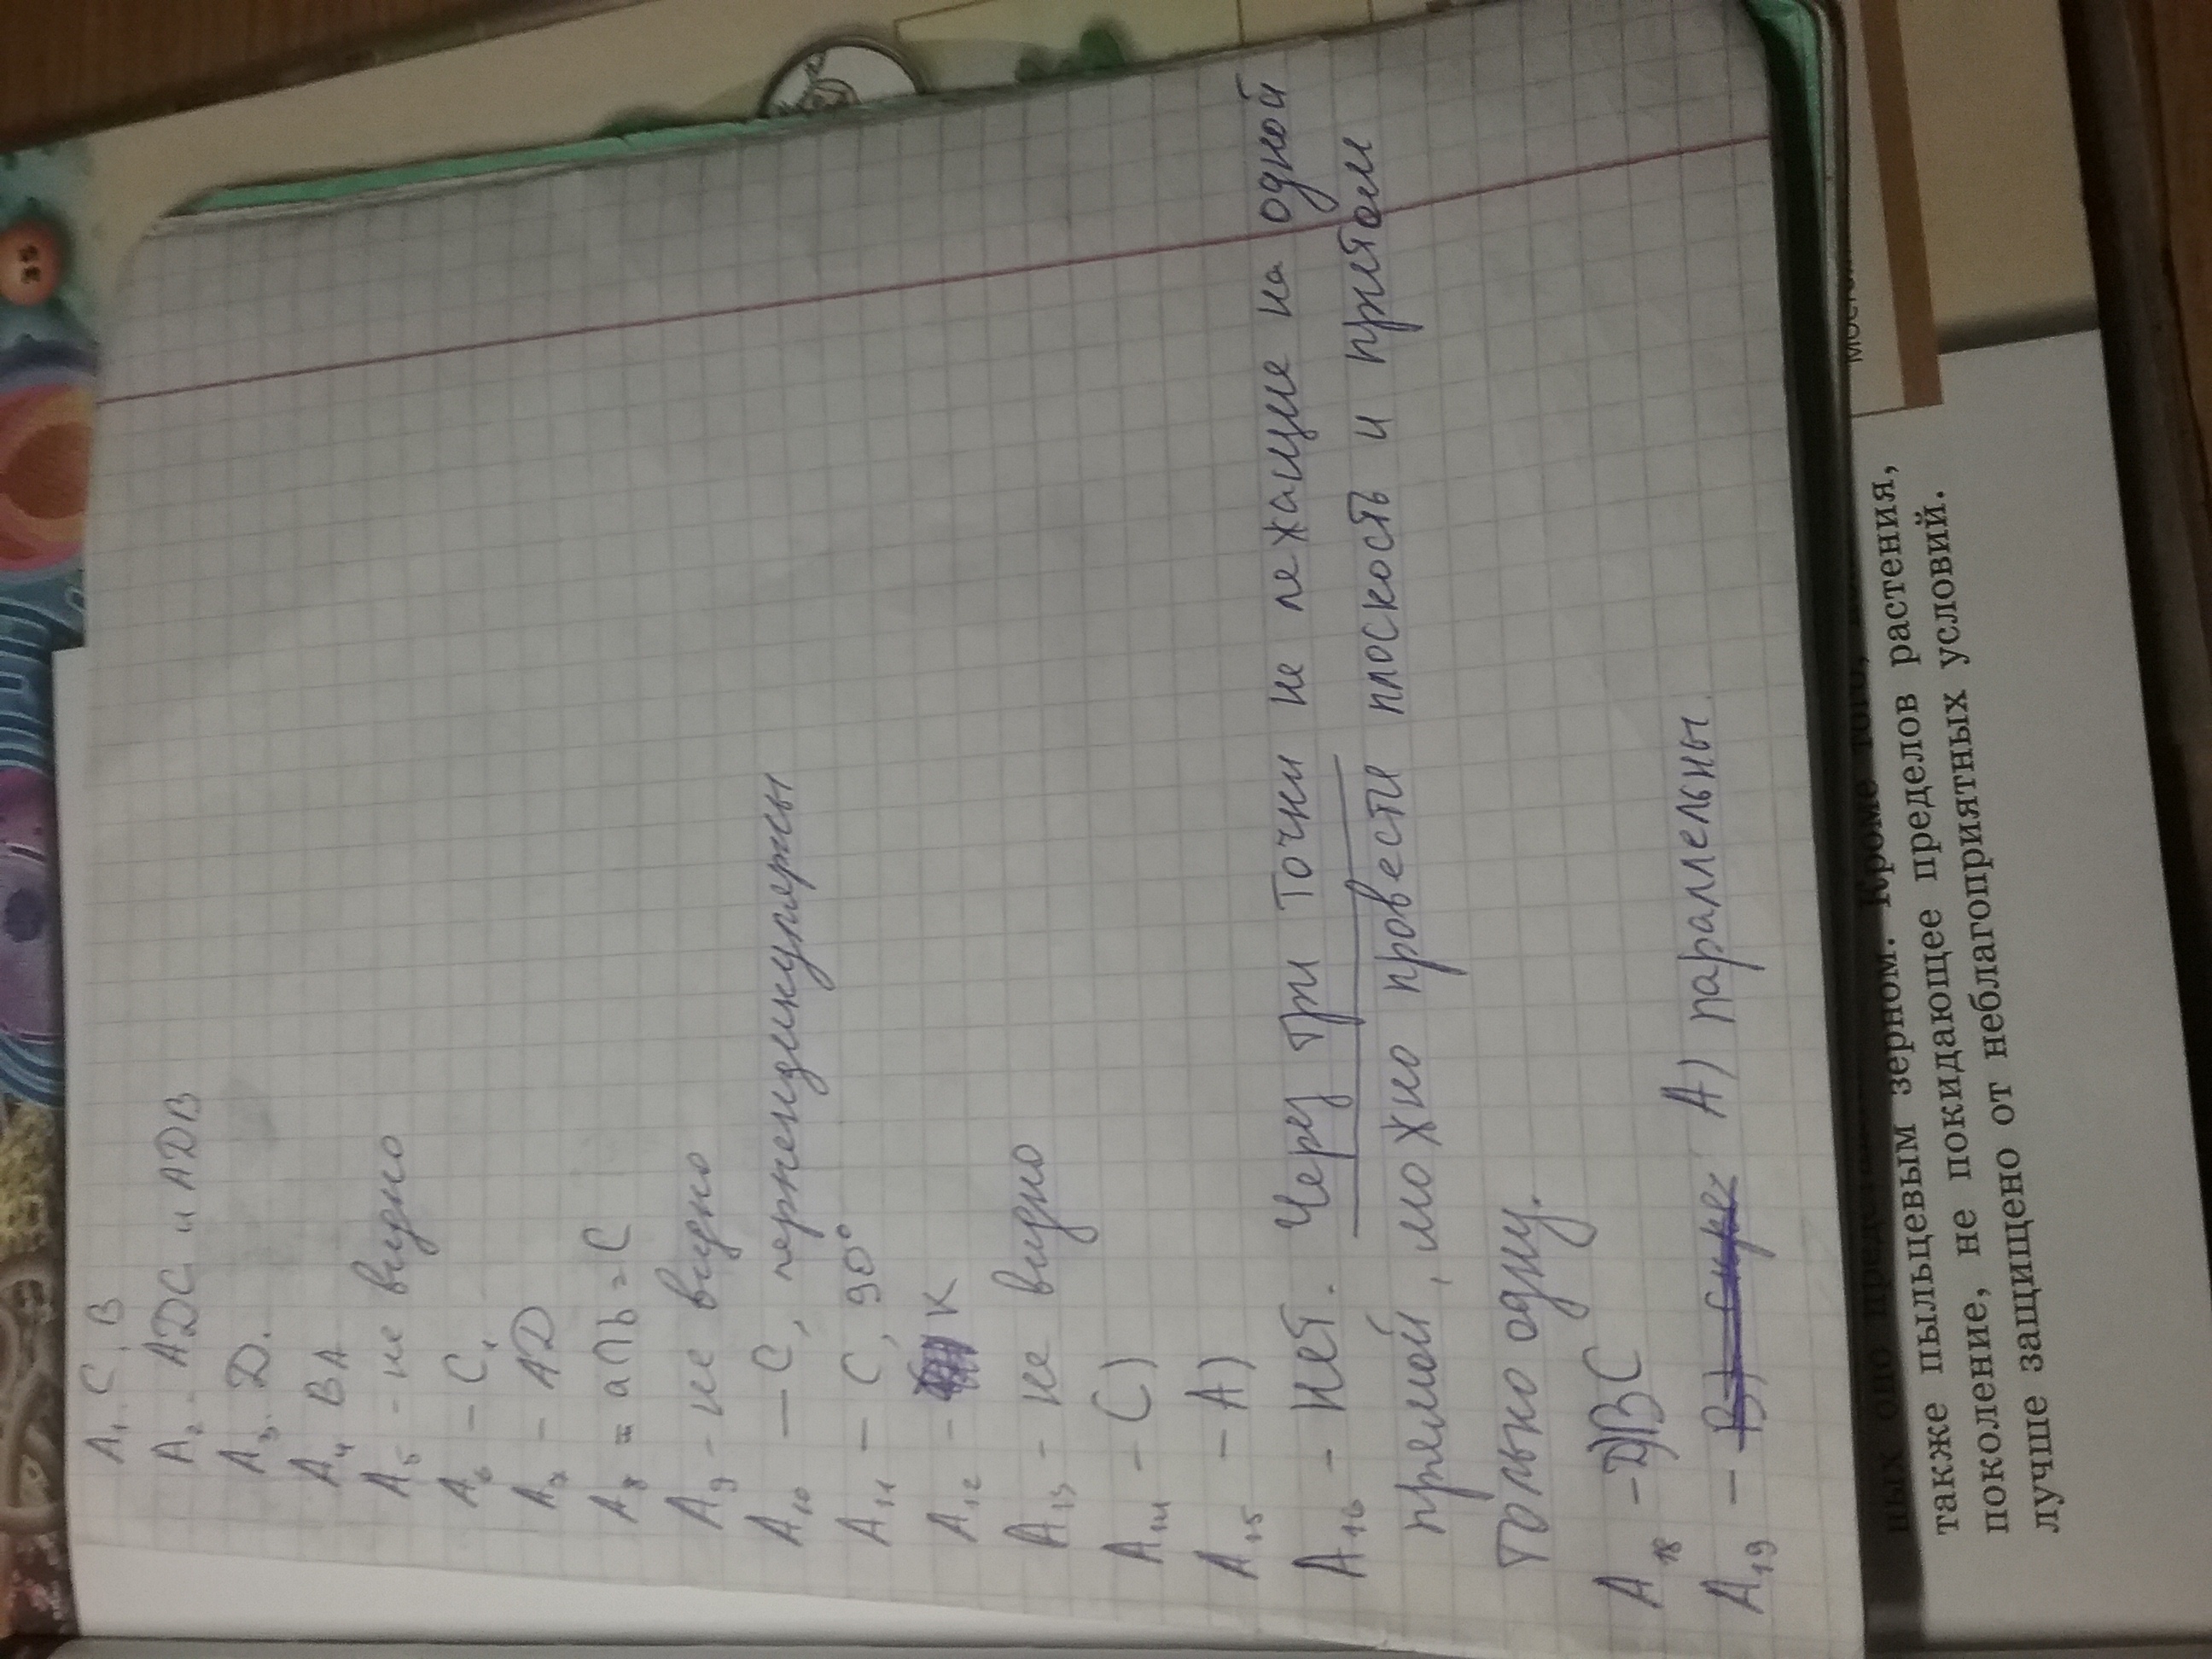 A₁. C, B
A₂ - ADC и ADB
A₃. D.
A₄ BA
A₅ - не видно
A₆ - C₁
A₇ - AD
A₈ = a∩b = C
A₉ - не видно
A₁₀ - C, перпендикулярны
A₁₁ - C, 90°
A₁₂ - K
A₁₃ - не видно
A₁₄ - C)
A₁₅ - A)
A₁₆ - Нет. Через три точки не лежащие на одной
прямой, можно провести плоскость и притом
только одну.
A₁₈ - DBC
A₁₉ - A) параллельны.
также пыльцевым зерном. Кроме того,
поколение, не покидающее пределов растения,
лучше защищено от неблагоприятных условий.
35